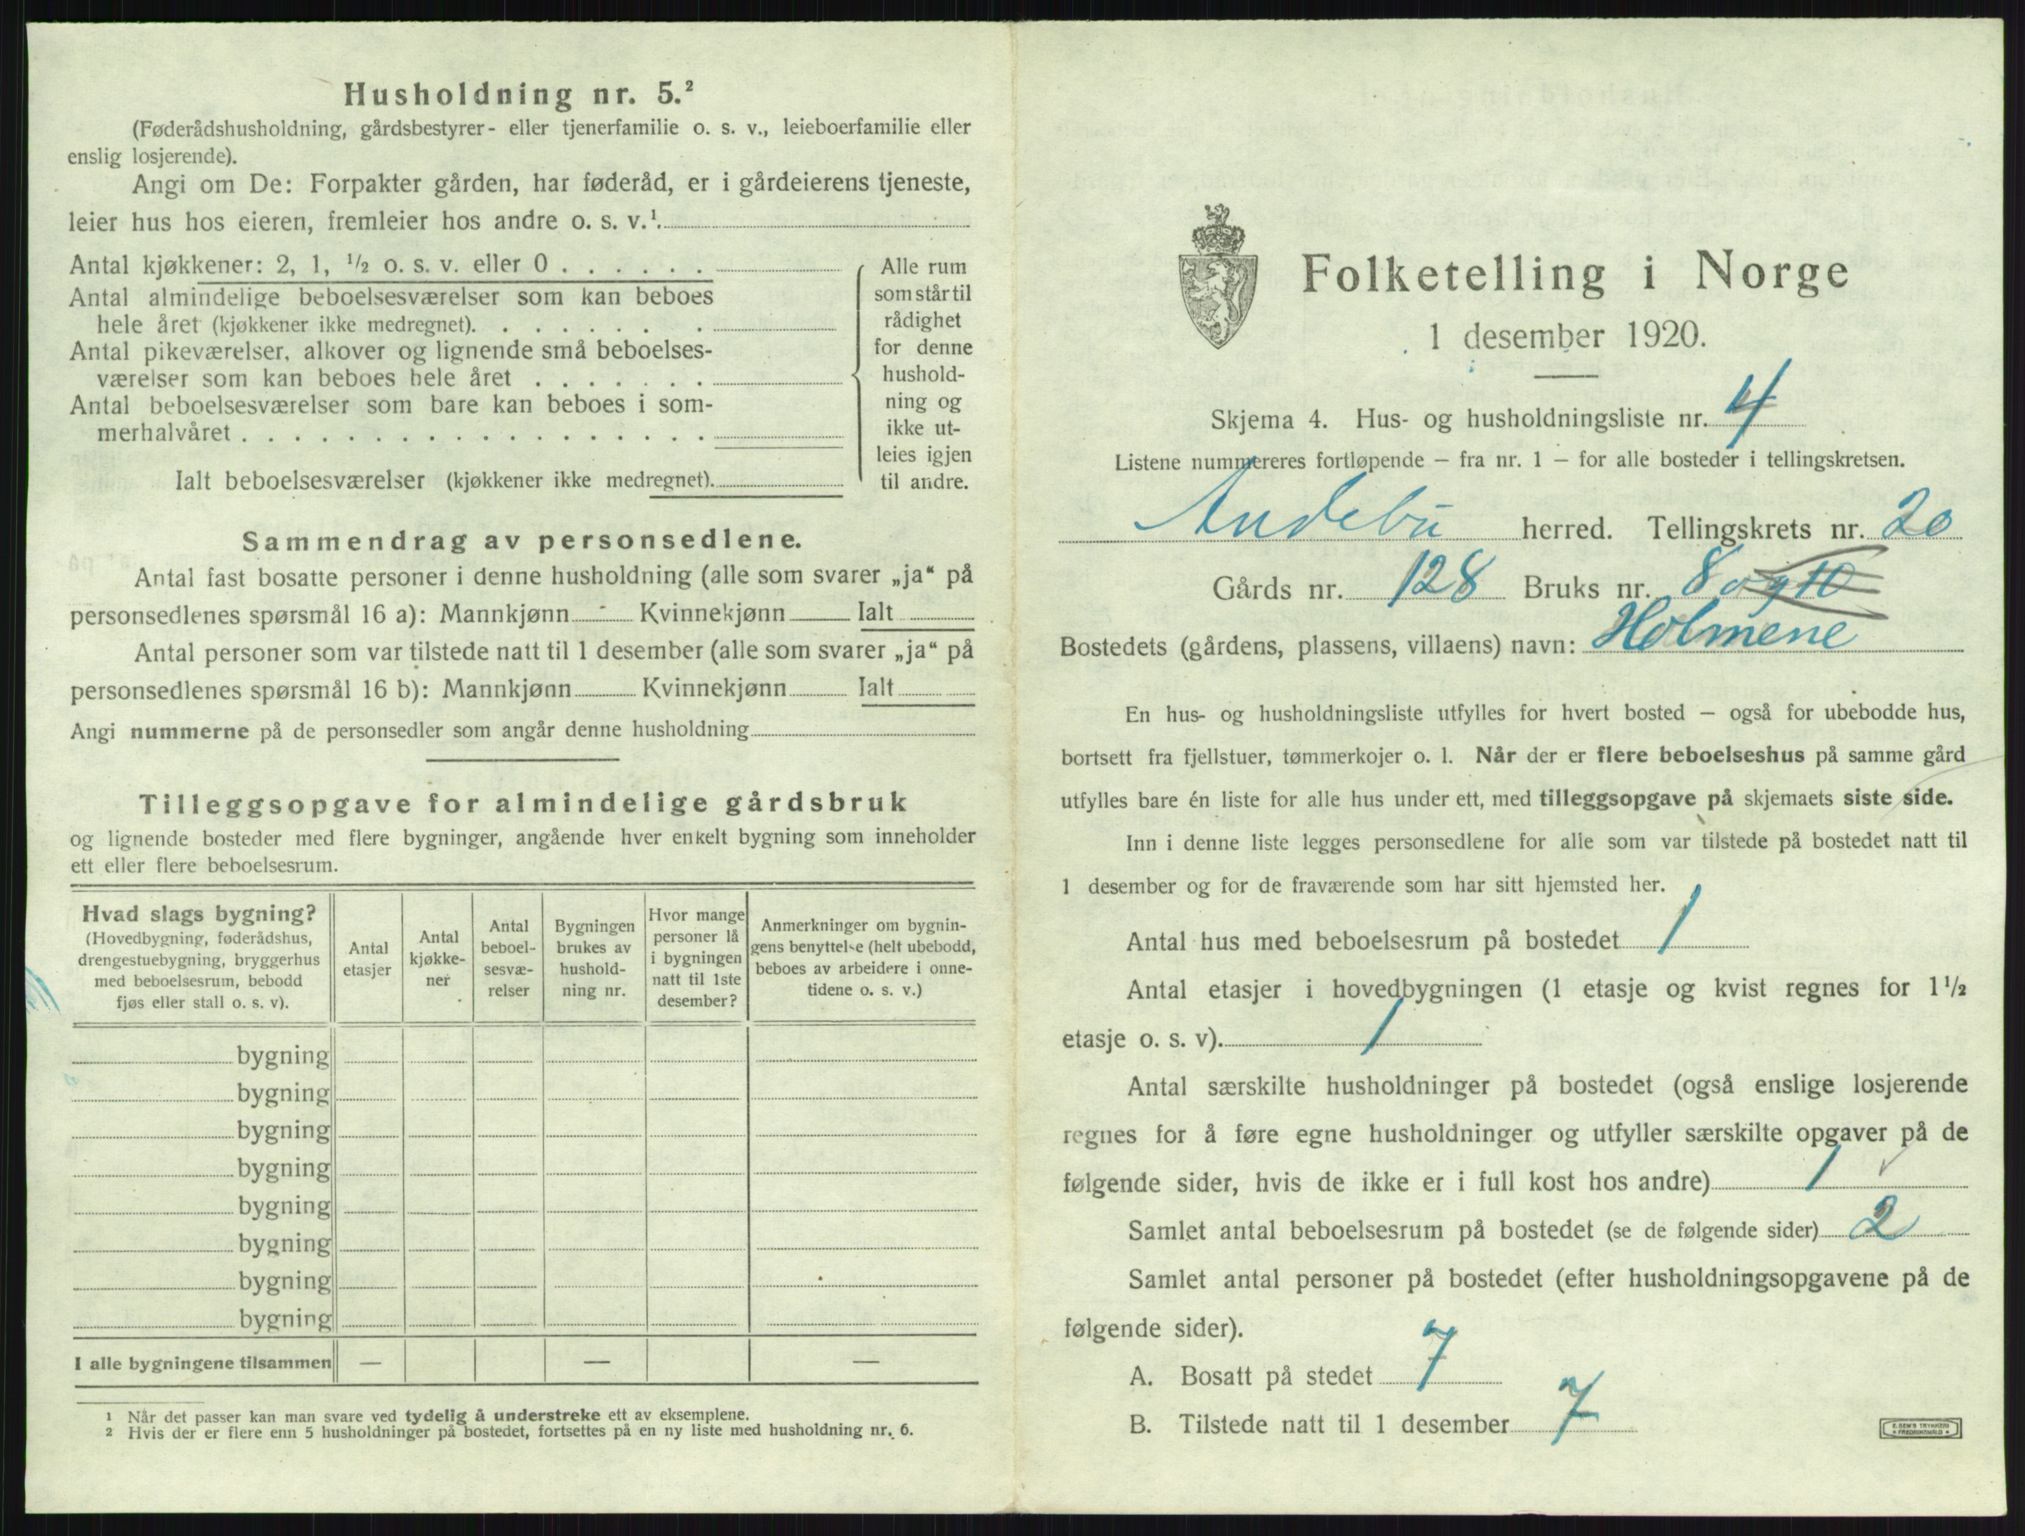 Husholdning nr. 5.²
(Føderådshusholdning, gårdsbestyrer- eller tjenerfamilie o. s. v., leieboerfamilie eller
enslig losjerende).
Angi om De: Forpakter gården, har føderåd, er i gårdeierens tjeneste,
leier hus hos eieren, fremleier hos andre o. s. v.¹.
Antal kjøkkener: 2, 1, ½ o. s. v. eller 0 . . . . . .
Antal almindelige beboelsesværelser som kan beboes
hele året (kjøkkener ikke medregnet). . . . . . . .
Antal pikeværelser, alkover og lignende små beboelses-
værelser som kan beboes hele året . . . . . . .
Antal beboelsesværelser som bare kan beboes i som-
merhalvåret . . . . . . . . . . . . . . . . . .
Ialt beboelsesværelser (kjøkkener ikke medregnet).
Alle rum
som står til
rådighet
for denne
hushold-
ning og
ikke ut-
leies igjen
til andre.
Sammendrag av personsedlene.
Antal fast bosatte personer i denne husholdning (alle som svarer „ja“ på
personsedlenes spørsmål 16 a): Mannkjønn Kvinnekjønn Ialt
Antal personer som var tilstede natt til 1 desember (alle som svarer „ja“ på
personsedlenes spørsmål 16 b): Mannkjønn Kvinnekjønn Ialt
Angi nummerne på de personsedler som angår denne husholdning
Tilleggsopgave for almindelige gårdsbruk
og lignende bosteder med flere bygninger, angående hver enkelt bygning som inneholder
ett eller flere beboelsesrum.
Hvad slags bygning?
(Hovedbygning, føderådshus,
drengestuebygning, bryggerhus
med beboelsesrum, bebodd
fjøs eller stall o. s. v).
Antal
etasjer
Antal
kjøkke-
ner
Antal
beboel-
sesvæ-
relser
Bygningen
brukes av
hushold-
ning nr.
Hvor mange
personer lå
i bygningen
natt til 1ste
desember?
Anmerkninger om bygnin-
gens benyttelse (helt ubebodd,
beboes av arbeidere i onne-
tidene o. s. v.)
bygning
bygning
bygning
bygning
bygning
bygning
bygning
bygning
I alle bygningene tilsammen — — —
1 Når det passer kan man svare ved tydelig å understreke ett av eksemplene.
2 Hvis der er flere enn 5 husholdninger på bostedet, fortsettes på en ny liste med husholdning nr. 6.
Folketelling i Norge
1 desember 1920.
Skjema 4. Hus- og husholdningsliste nr. 4
Listene nummereres fortløpende – fra nr. 1 – for alle bosteder i tellingskretsen.
Andebu herred. Tellingskrets nr. 20
Gårds nr. 128 Bruks nr. 8 og 10
Bostedets (gårdens, plassens, villaens) navn: Holmene
En hus- og husholdningsliste utfylles for hvert bosted – også for ubebodde hus,
bortsett fra fjellstuer, tømmerkojer o. l. Når der er flere beboelseshus på samme gård
utfylles bare én liste for alle hus under ett, med tilleggsopgave på skjemaets siste side.
Inn i denne liste legges personsedlene for alle som var tilstede på bostedet natt til
1 desember og for de fraværende som har sitt hjemsted her.
Antal hus med beboelsesrum på bostedet 1
Antal etasjer i hovedbygningen (1 etasje og kvist regnes for 1½
etasje o. s. v). 1
Antal særskilte husholdninger på bostedet (også enslige losjerende
regnes for å føre egne husholdninger og utfyller særskilte opgaver på de
følgende sider, hvis de ikke er i full kost hos andre) 1
Samlet antal beboelsesrum på bostedet (se de følgende sider) 2
Samlet antal personer på bostedet (efter husholdningsopgavene på de
følgende sider).
A. Bosatt på stedet 7
B. Tilstede natt til 1 desember 7